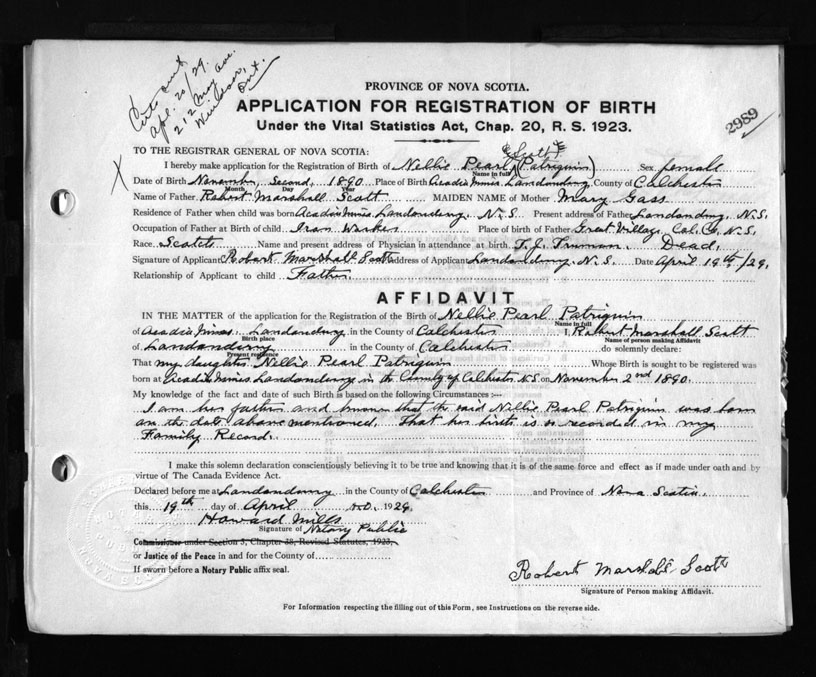 Apl. 20/29.
212 May ave.
Windsor,
Ont.
PROVINCE OF NOVA SCOTIA.
APPLICATION FOR REGISTRATION OF BIRTH
Under the Vital Statistics Act, Chap. 20, R. S. 1923.
2989
TO THE REGISTRAR GENERAL OF NOVA SCOTIA:
Scott
I hereby make application for the Registration of Birth of Nellie Pearl (Patriquin) Sex female
Name in full
Date of Birth November, Second, 1890 Place of Birth Acadia Mines Londonderry County of Colchester
Month, Day Year
Name of Father Robert Marshall Scott MAIDEN NAME of Mother Mary Gass
Residence of Father when child was born Acadia Mines Londonderry, N.S Present address of Father Londonderry, N.S.
Occupation of Father at Birth of child Iron Worker Place of birth of Father Great Village, Col. Co, N.S.
Race Scotch Name and present address of Physician in attendance at birth. Dead.
Signature of Applicant Robert Marshall Scott Address of Applicant Londonderry N.S. Date April 19th/29.
Relationship of Applicant to child Father.
AFFIDAVIT
IN THE MATTER of the application for the Registration of the Birth of Nellie Pearl Patriquin
Name in full
of Acadia Mines, Londonderry in the County of Colchester I, Robert Marshall Scott
Birth place Name of person making Affidavit
of Londonderry in the County of Colchester do solemnly declare:
Present residence
That my daughter Nellie Pearl Patriquin Whose Birth is sought to be registered was
born at Acadia Mines Londonderry in the County of Colchester N.S on November 2nd 1890.
My knowledge of the fact and date of such Birth is based on the following Circumstances :—
I am her father and know that the said Nellie Pearl Patriquin was born
on the date above mentioned. That her birth is recorded in my
Family Record.
I make this solemn declaration conscientiously believing it to be true and knowing that it is of the same force and effect as if made under oath and by
virtue of The Canada Evidence Act.
Declared before me at Londonderry in the County of Colchester and Province of Nova Scotia.
this 19th day of April A.D. 1929.
Howard Mills
Signature of Notary Public
Commissioner under Section 3, Chapter 38, Revised Statutes, 1923,
or Justice of the Peace in and for the County of
If sworn before a Notary Public affix seal.
Robert Marshall Scott
Signature of Person making Affidavit.
For Information respecting the filling out of this Form, see Instructions on the reverse side.